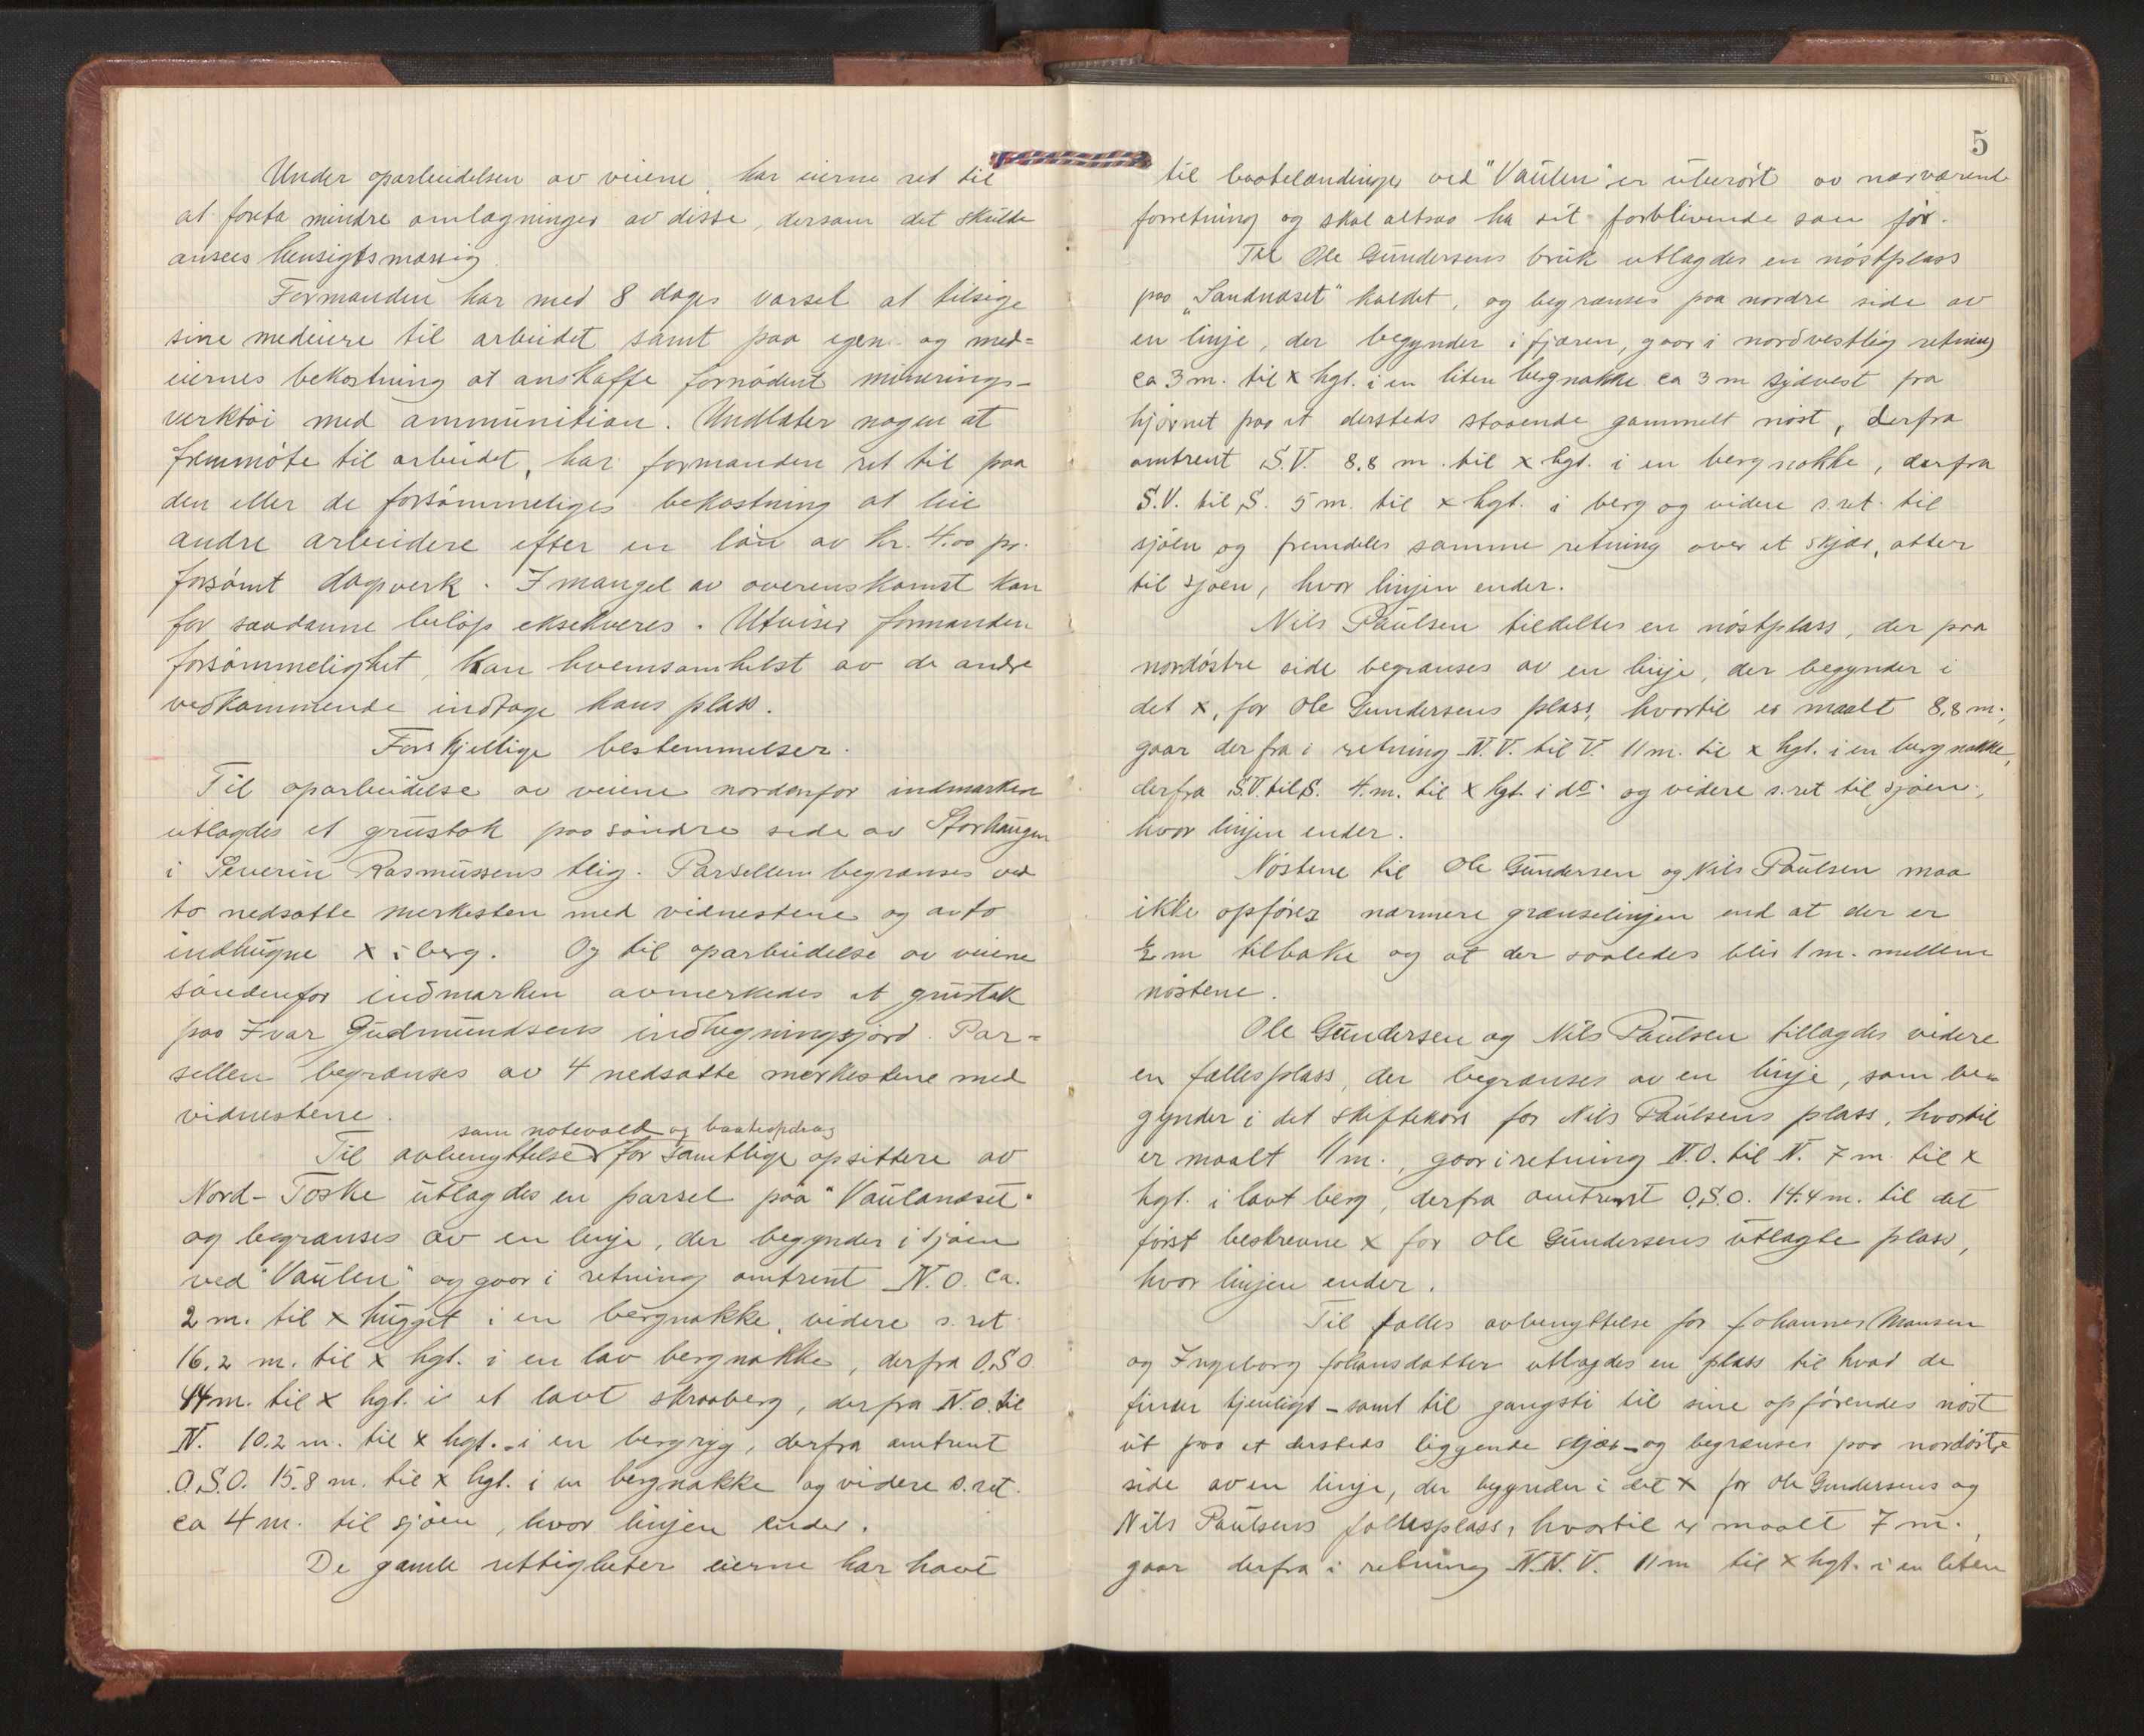 Under oparbeidelsen av veiene har eierne ret til
at foreta mindre omlægninger av disse, dersom det skulde
ansees hensigtsmæssig.
Formanden har med 8 dages varsel at tilsige
sine medeiere til arbeidet samt paa egen og med=
eiernes bekostning at anskaffe fornödent minerings-
verktöi med ammunition. Undlater nogen at
fremmöte til arbeidet, har formanden ret til paa
den eller de forsömmeliges bekostning at leie
andre arbeidere efter en lön av kr. 4.00 pr.
forsömt dagverk. I mangel av overenskomst kan
for saadanne belöp eksekveres. Utviser formanden
forsömmelighet, kan hvemsomhelst av de andre
vedkommende indtage hans plass.
Forskjellige bestemmelser.
Til oparbeidelse av veiene nordenfor indmarken
utlagdes et grustak paa söndre side av Storhaugen
i Severin Rasmussens teig. Parsellen begrænses ved
to nedsatte merkesten med vidnestene og av to
indhugne x i berg. Og til oparbeidelse av veiene
söndenfor indmarken avmerkedes et grustak
paa Ivar Gudmundsens indhegningsjord. Par=
sellen begrænses av 4 nedsatte merkestene med
vidnestene.
som notevold og baateopdrag
Til avbenyttelse for samtlige opsittere av
Nord-Toske utlagdes en parsel paa "Vaulanæset"
og begrænses av en linje, der begynder i sjöen
ved "Vaulen" og gaar i retning omtrent N.O. ca.
2 m. til x hugget i en bergnakke, videre s. ret
16.2 m. til x hgt. i en lav bergnakke, derfra O.S.O.
44 m. til x hgt. i et lavt skraaberg, derfra N.O. til
N. 10.2 m. til x hgt. i en bergryg, derfra omtrent
O.S.O. 15.8 m. til x hgt. i en bergnakke og videre s. ret.
ca 4 m. til sjöen, hvor linjen ender.
De gamle rettigheter eierne har havt
5
til baatelandinger ved "Vaulen" er uberört av nærværende
forretning og skal altsaa ha sit forblivende som för.
Til Ole Gundersens bruk utlagdes en nöstplass
paa "Sandnæset" kaldet, og begrænses paa nordre side av
en linje, der begynder i fjæren, gaar i nordvestlig retning
ca 3 m. til x hgt. i en liten bergnakke ca 3 m sydvest fra
hjörnet paa et dersteds staaende gammelt nöst, derfra
omtrent S.V. 8.8 m. til x hgt. i en bergnakke, derfra
S.V. til S. 5 m. til x hgt. i berg og videre s. ret. til
sjöen og fremdeles samme retning over et skjær, atter
til sjöen, hvor linjen ender.
Nils Paulsen tildeltes en nöstplass, der paa
nordöstre side begrænses av en linje, der begynder i
det x, for Ole Gundersens plass, hvortil er maalt 8.8 m.,
gaar derfra i retning N.V. til V. 11 m. til x hgt. i en bergnakke,
derfra S.V. til S. 4. m. til x hgt. i do. og videre s. ret til sjöen,
hvor linjen ender.
Nöstene til Ole Gundersen og Nils Paulsen maa
ikke opföres nærmere grænselinjen end at der er
½ m tilbake og at der saaledes blir 1 m. mellem
nöstene.
Ole Gundersen og Nils Paulsen tillagdes videre
en fællesplass, der begrænses av en linje, som be-
gynder i det skiftekors for Nils Paulsens plass, hvortil
er maalt 11 m., gaar i retning N.O. til N. 7 m. til x
hgt. i lavt berg, derfra omtrent O.S.O. 14.4 m. til det
först beskrevne x for Ole Gundersens utlagte plass,
hvor linjen ender.
Til fælles avbenyttelse for Johannes Monsen
og Ingeborg Johansdatter utlagdes en plass til hvad de
finder tjenligt - samt til gangsti til sine opförendes nöst
ut paa et dersteds liggende skjær - og begrænses paa nordöstre
side av en linje, der begynder i det x for Ole Gundersens og
Nils Paulsens fællesplass, hvortil er maalt 7 m.,
gaar derfra i retning N.N.V. 11 m til x hgt. i en liten